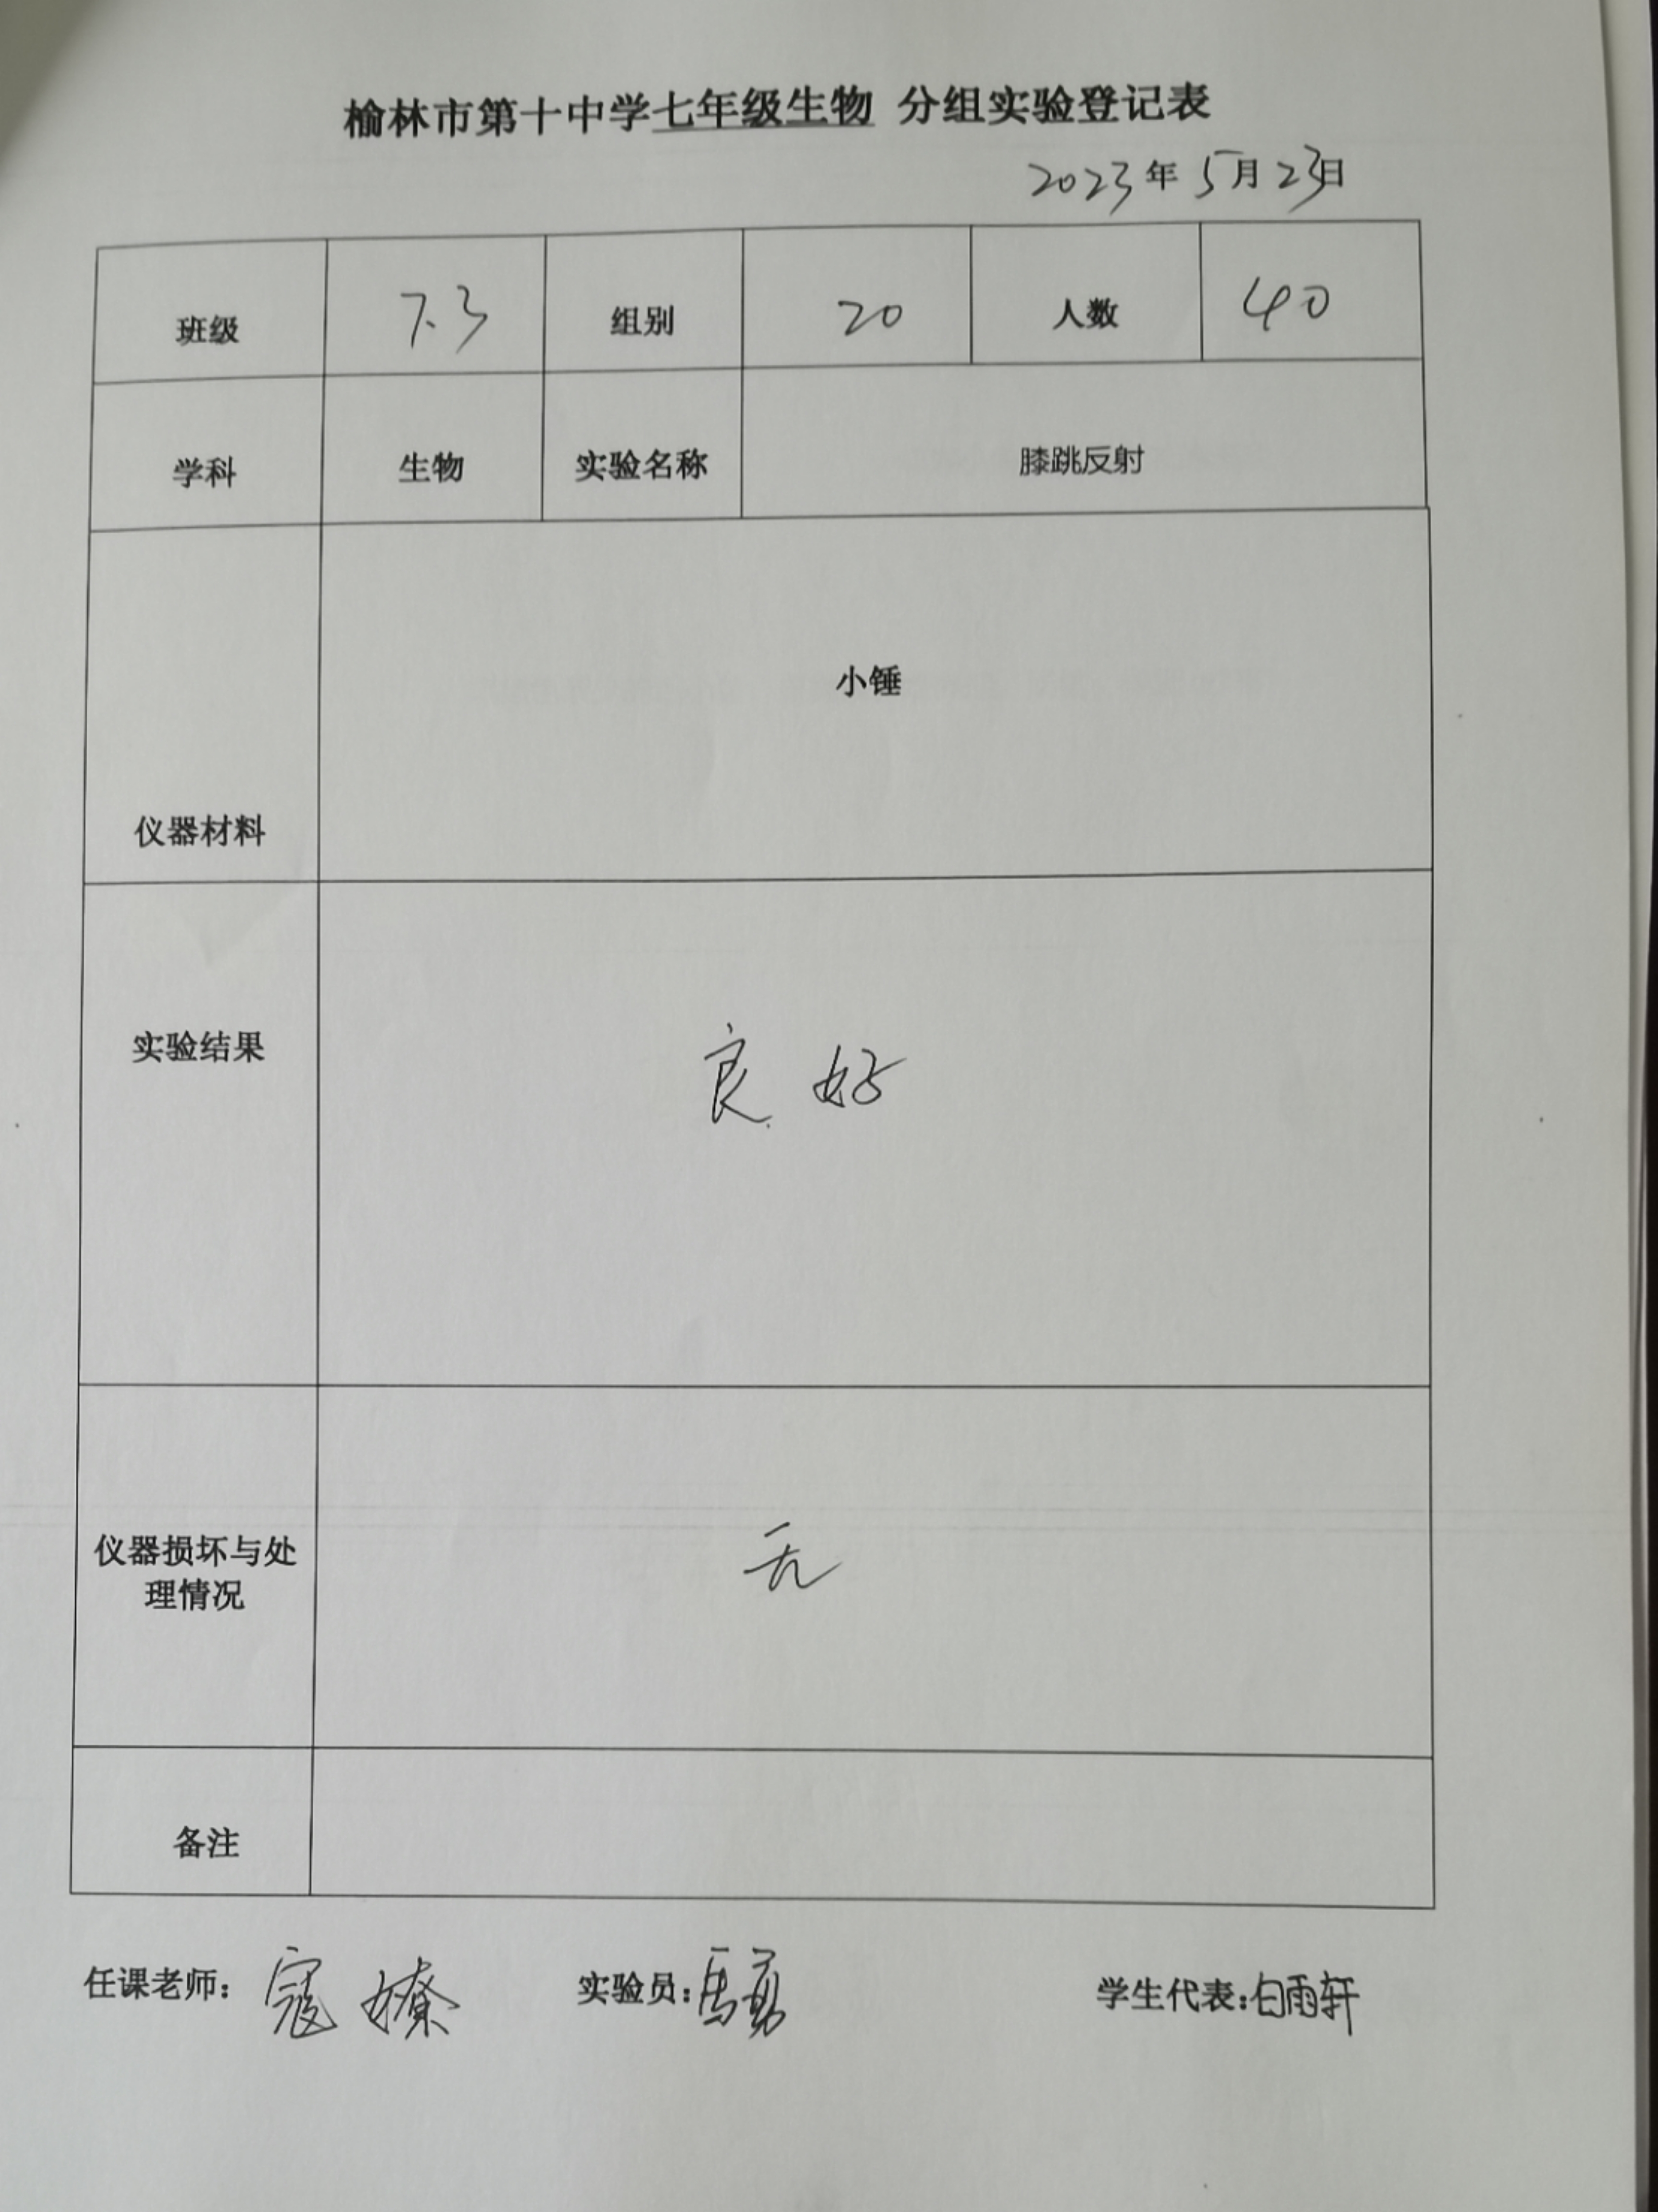 榆林市第十中学七年级生物 分组实验登记表
2023年5月23日
班级 7.3 组别 20 人数 40
学科 生物 实验名称 膝跳反射
小锤
仪器材料
实验结果 良好
仪器损坏与处
理情况
无
备注
任课老师：寇嫽 实验员： 学生代表：白雨轩